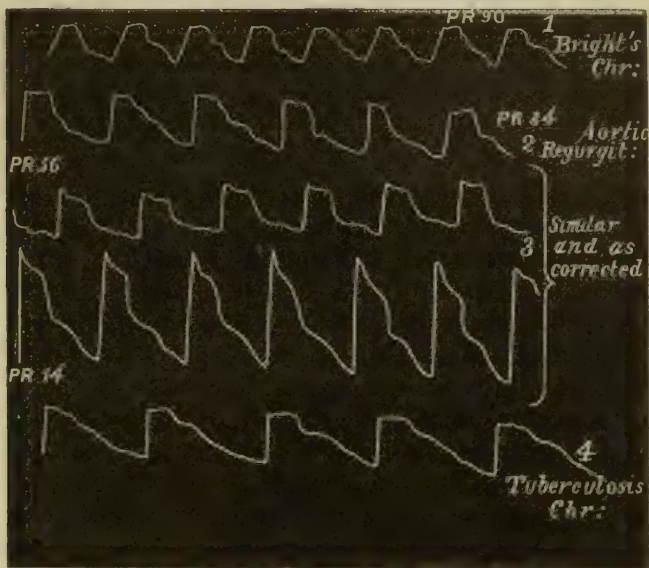 PR 90
1
Bright's
Chr:
PR 84
Aortic
2 Regurgit:
PR 56
Similar
3 and as
corrected
PR 44
4
Tuberculosis
Chr: